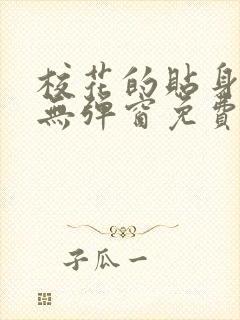 校花的貼身
無彈窗免費
子瓜一